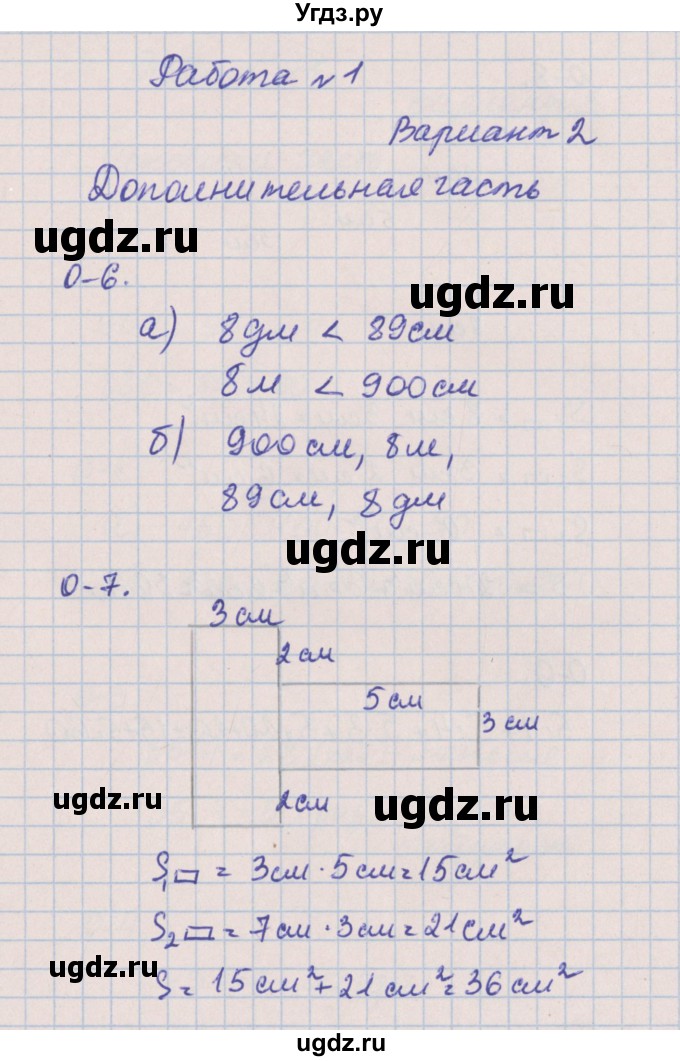 Угдз.ру
Работа №1
Вариант 2
Дополнительная часть
ugdz.ru
О-6.
ugdz.ru
а) 8дм < 89см
8м < 900см
б) 900см, 8м,
89см, 8дм
ugdz.ru
О-7.
3см
2см
5см
3см
ugdz.ru
2см
ugdz.ru
S₁▭ = 3см · 5см = 15см²
S₂▭ = 7см · 3см = 21см²
ugdz.ru
S = 15см² + 21см² = 36см²
ugdz.ru